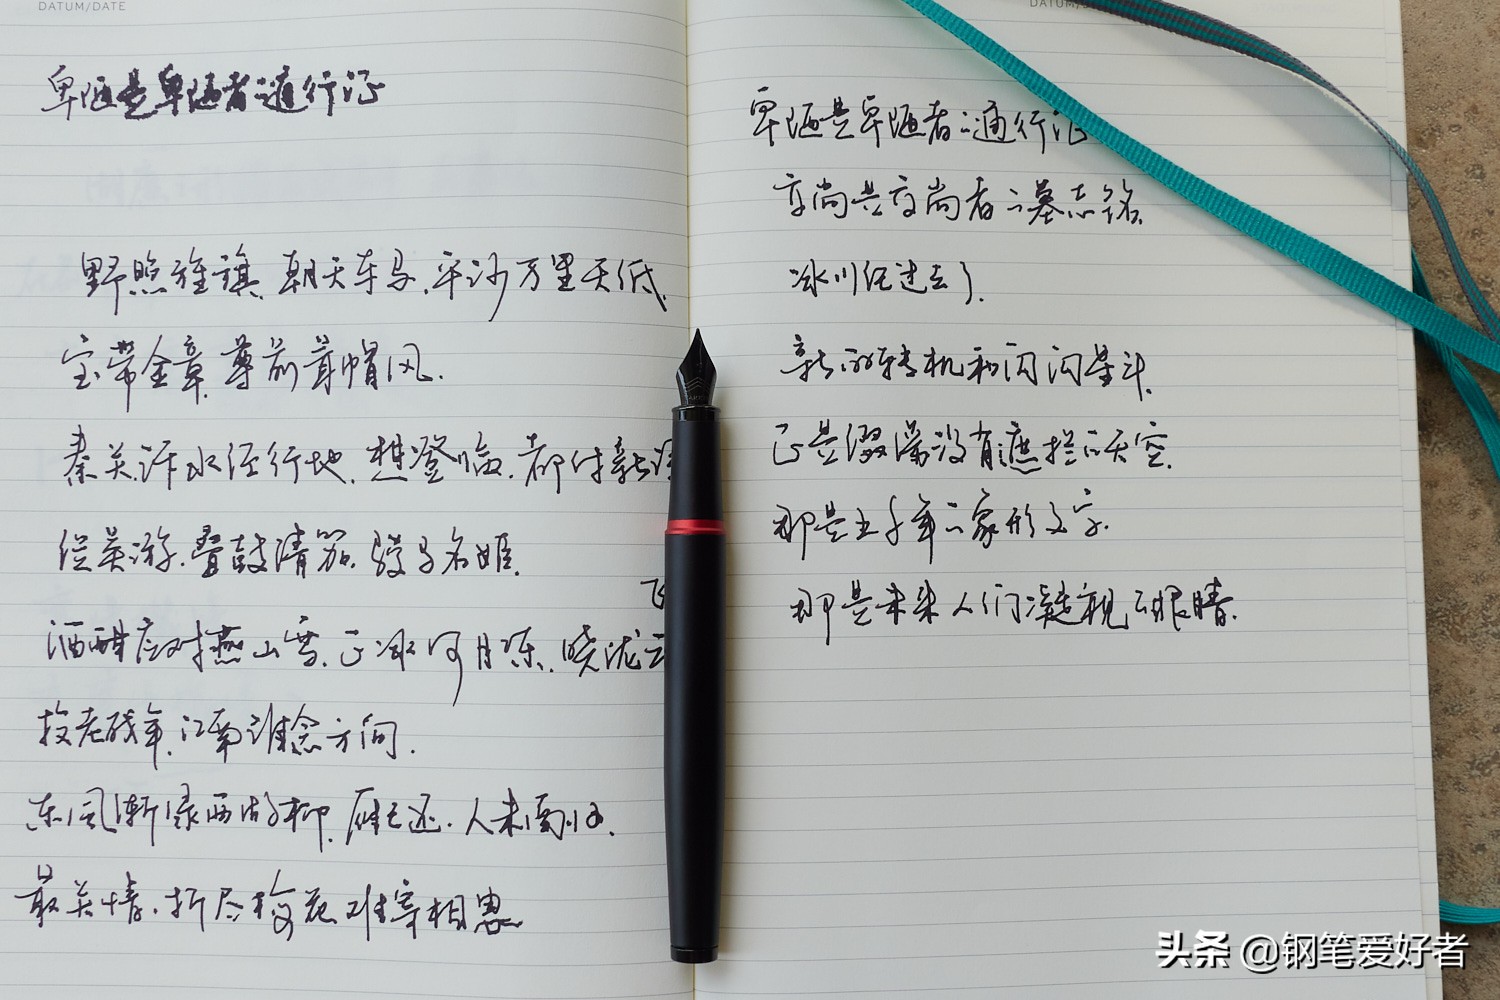 DATUM/DATE
卑陋是卑陋者的通行证
野照旌旗,朝天车马,平沙万里天低,
宝带金章,尊前茸帽风.
秦关汴水经行地,想登临,都付新诗
纵英游,叠鼓清笳,骏马名姬.
酒酣应对燕山雪,正冰河月冻,晓陇云
飞
投老残年,江南谁念方回.
东风渐绿西湖柳,雁已还.人未南归.
最关情,折尽梅花难寄相思
DATUM/
卑陋是卑陋者的通行证
高尚是高尚者的墓志铭.
冰川纪过去了.
新的转机和闪闪星斗,
正是缀满没有遮拦的天空.
那是五千年的象形文字.
那是未来人们凝视的眼睛.
头条 @钢笔爱好者